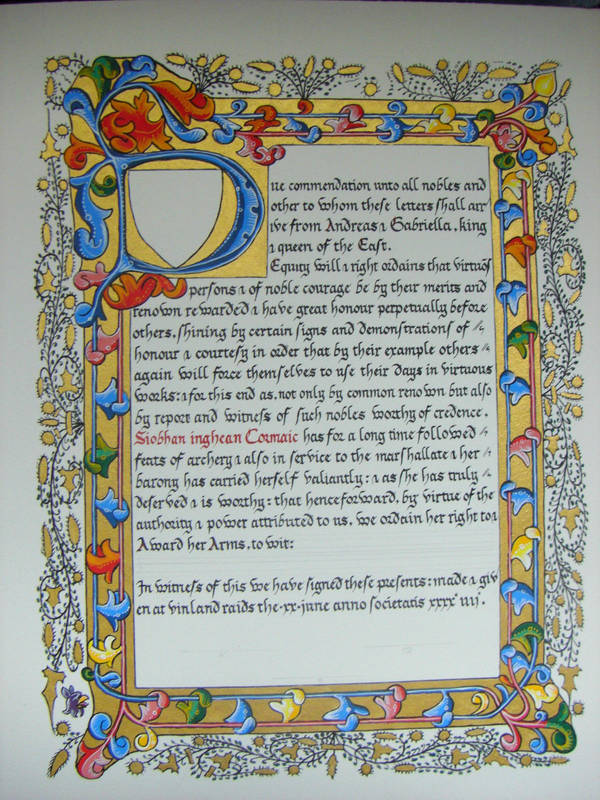 Due commendation unto all nobles and
other to whom these letters shall arr
ive from Andreas ⁊ Gabriella, king
⁊ queen of the East.
Equity will ⁊ right ordains that virtuos
persons ⁊ of noble courage be by their merits and
renown rewarded ⁊ have great honour perpetually before
others, shining by certain signs and demonstrations of
honour ⁊ courtesy in order that by their example others
again will force themselves to use their days in virtuous
works: ⁊ for this end as, not only by common renown but also
by report and witness of such nobles worthy of credence,
Siobhan inghean Cormaic has for a long time followed
feats of archery ⁊ also in service to the marshallate ⁊ her
barony has carried herself valiantly: ⁊ as she has truly
deserved ⁊ is worthy: that henceforward, by virtue of the
authority ⁊ power attributed to us, we ordain her right to ⁊
Award her Arms, to wit:
In witness of this we have signed these presents: made ⁊ giv
en at vinland raids the ·xx· june anno societatis xxxx° iiij°.